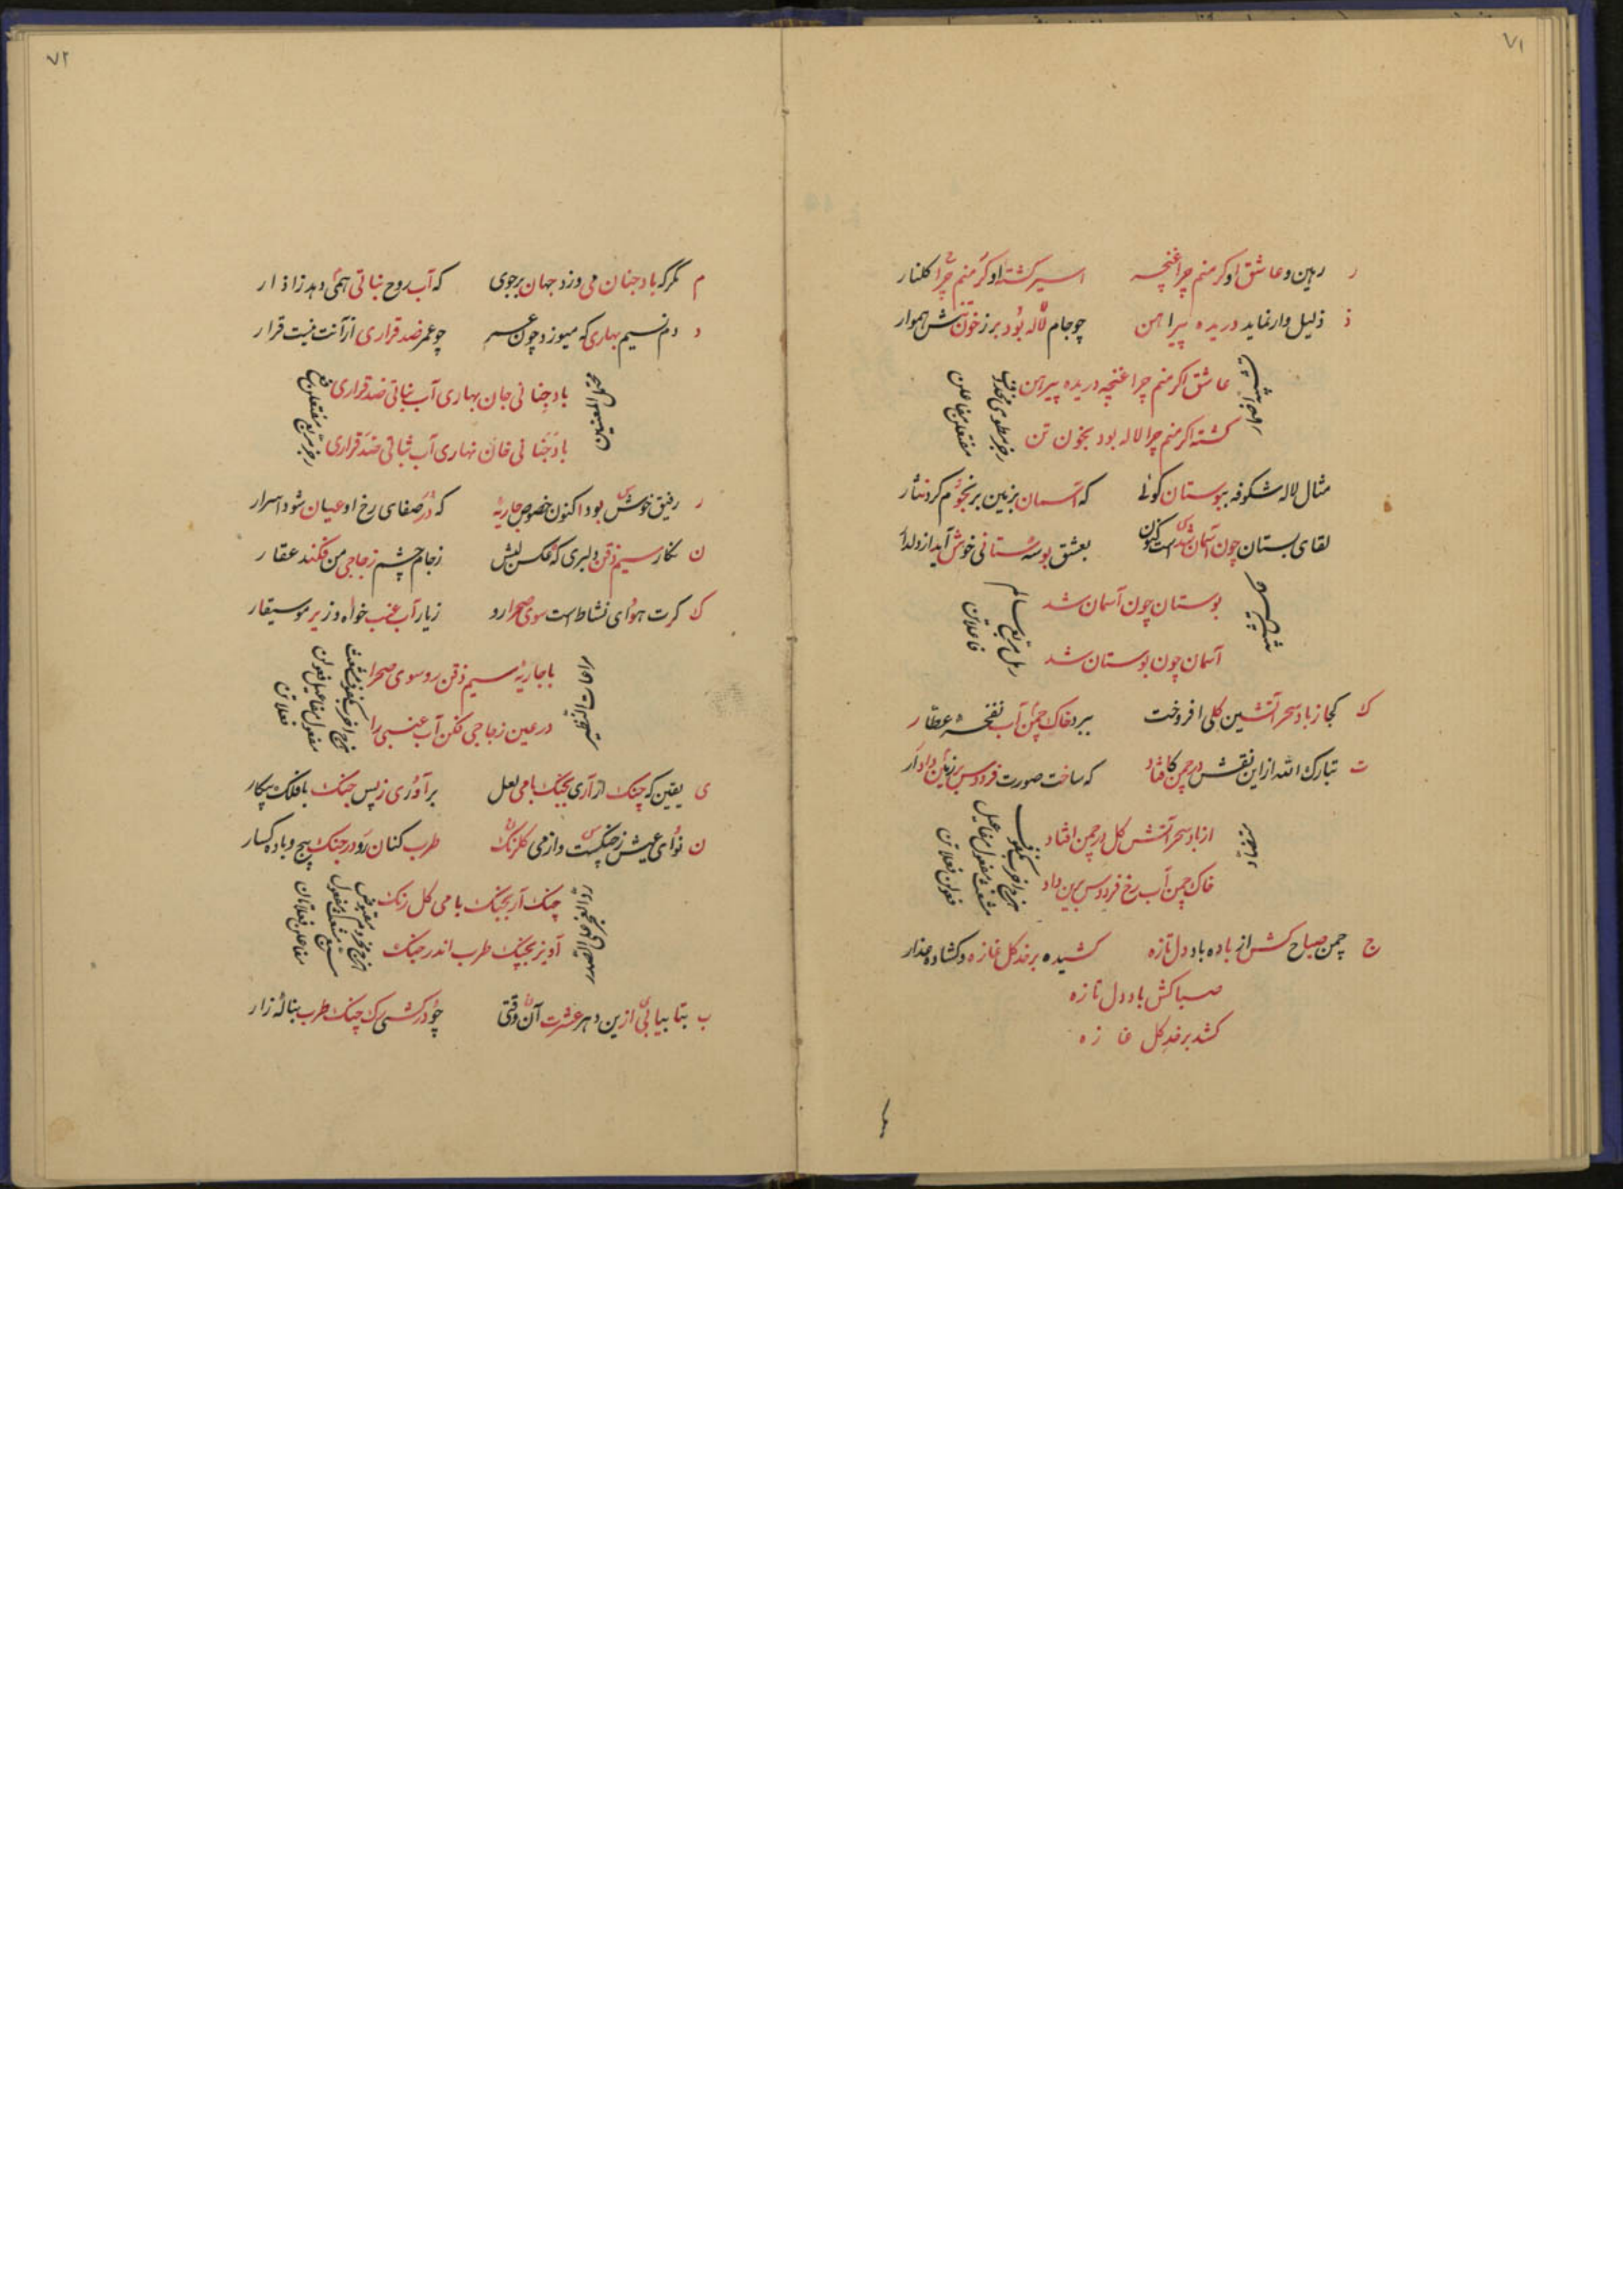 ۷۱
ر رهین و عاشق او کر منم چرا غنچه اسیر کشته او کر منم چرا کلنار
ذ ذلیل وار نماید دریده پیراهن چو جام لاله بود بر ز خون تنش هموار
عاشق اکر منم چرا غنچه دریده پیراهن
کشته اکر منم چرا لاله بود بخون تن
رجز مطوی مخبون
مفتعلن مفاعلن
مثال لاله شکوفه ببوستان کوئی که آسمان بزمین بر نجوم کرد نثار
لقای بستان چون آسمان شد است کنون بعشق بوسه ستانی خوش آید از دلدار
بوستان چون آسمان شد
آسمان چون بوستان شد
رمل مربع سالم
فاعلاتن
ک کجا ز باد سحر آتشین کلی افروخت ببرد خاک چمن آب نفحه عطار
ت تبارک الله از این نقش در چمن کافتاد که ساخت صورت فردوس بر زمین دادار
از باد سحر آتش کل در چمن افتاد
خاک چمن آب رخ فردوس برین داد
هزج اخرب مکفوف
مفعول مفاعیل
ج چمن صباح کش از باده باد دل تازه کشیده بر خد کل غازه و کشاده عذار
صبا کش باد دل تازه
کشد بر خد کل غازه
۷۲
م مکر که باد جنان می وزد جهان بر جوی که آب روح نباتی همی دهد زاذار
د دم نسیم بهاری که میوزد چون عمر چو عمر ضد قراری از آنت نیست قرار
باد جنانی جان بهاری آب نباتی ضد قراری
باد جنانی خان نهاری آب ثباتی ضد قراری
رجز مربع مفتعلن فع
ر رفیق خوش بود اکنون خصوص جاریه که در صفای رخ او عیان شود اسرار
ن نکار سیم ذقن دلبری که عکس لبش ز جام چشم زجاجی من فکند عقار
ک کرت هوای نشاط است سوی صحرا رو ز یار آب عنب خواه و زیر موسیقار
با جاریه سیم ذقن رو سوی صحرا
در عین زجاجی فکن آب عنبی را
مفعول مفاعیل فعولن
ی یقین که چنک ار آری بچنک با می لعل بر آوری ز پس جنک با فلک پیکار
ن نوای عیش ز چنکست و از می کلرنک طرب کنان رو در جنک پیچ و باده کسار
چنک آر بچنک با می کل رنک
آویز بچنک طرب اندر جنک
ب بتا بیابی ازین دهر عشرت آن وقتی چو درکشی رک چنک طرب بناله زار